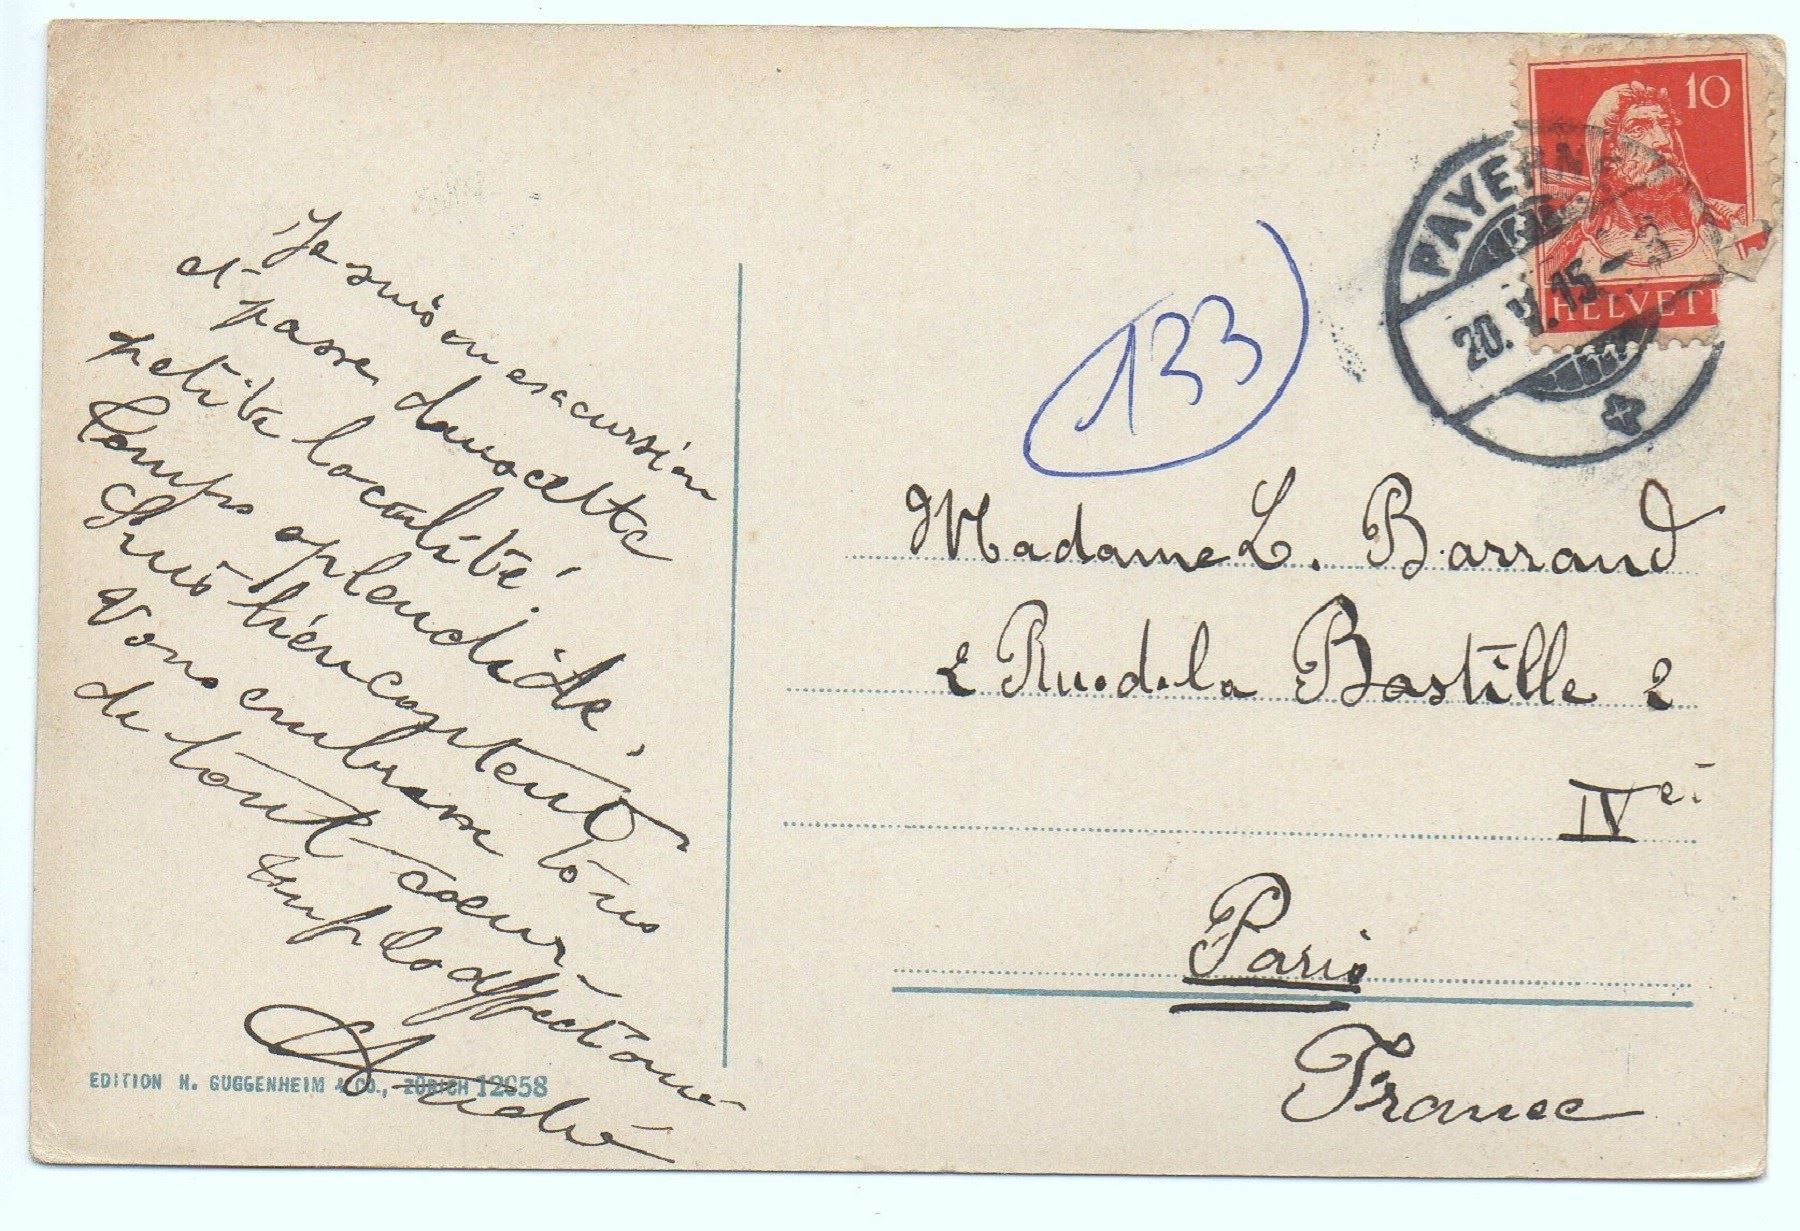 Je suis en exscursion
et passe dans cette
petite localité.
Temps splendide,
Suis bien content
Vous embrasse tous
de tout coeur.
André
EDITION H. GUGGENHEIM & CO., ZÜRICH 12658
10
HELVETI
PAYERNE
20. V. 15 - 3
133
Madame L. Barraud
2 Rue de la Bastille 2
IVe
Paris
France